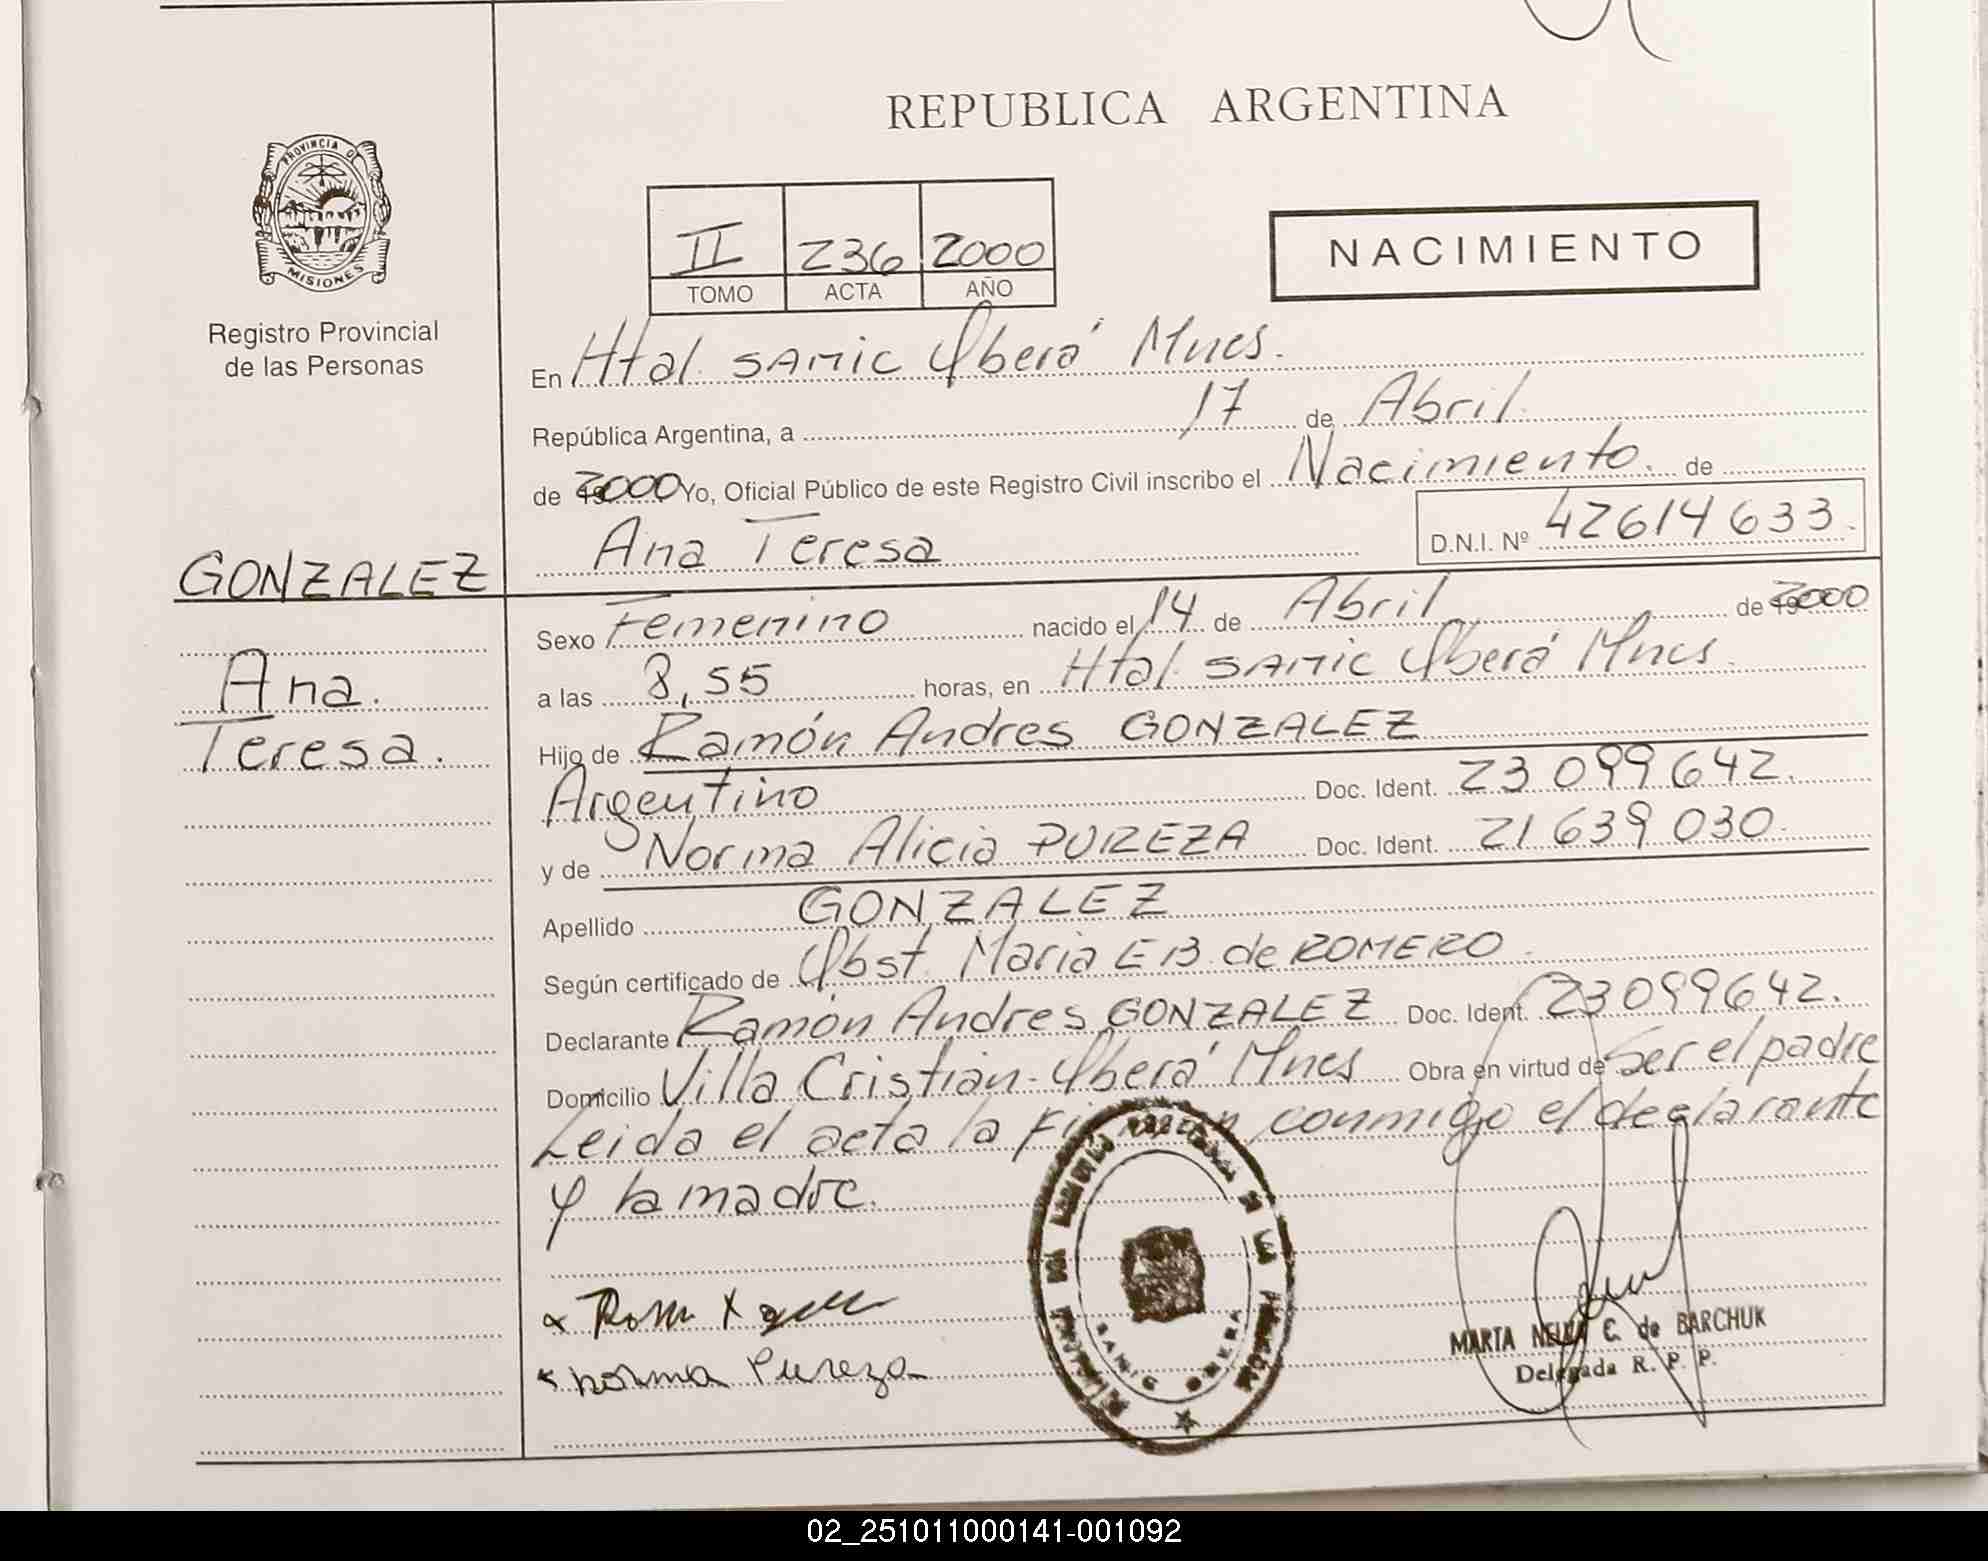 REPUBLICA ARGENTINA
PROVINCIA D
MISIONES
Registro Provincial
de las Personas
II 236 2000
TOMO ACTA AÑO
NACIMIENTO
En Htal. SAMIC Oberá Mnes.
República Argentina, a 17 de Abril
de 2000 Yo, Oficial Público de este Registro Civil inscribo el Nacimiento. de
Ana Teresa D.N.I. Nº 42614633.
GONZALEZ
Ana.
Teresa.
Sexo Femenino nacido el 14 de Abril de 2000
a las 8,55 horas, en Htal. SAMIC Oberá Mnes.
Hijo de Ramón Andres GONZALEZ
Argentino Doc. Ident. 23 099 642.
y de Norma Alicia PUREZA Doc. Ident. 21 639 030.
Apellido GONZALEZ
Según certificado de Obst. Maria E B de ROMERO.
Declarante Ramón Andres GONZALEZ Doc. Ident. 23099642.
Domicilio Villa Cristian-Oberá Mnes Obra en virtud de Ser el padre
Leida el acta la Firman conmigo el declarante
y la madre.
Norma Pureza
SAMIC OBERA
MARTA C. de BARCHUK
Delegada R. P. P.
02_251011000141-001092